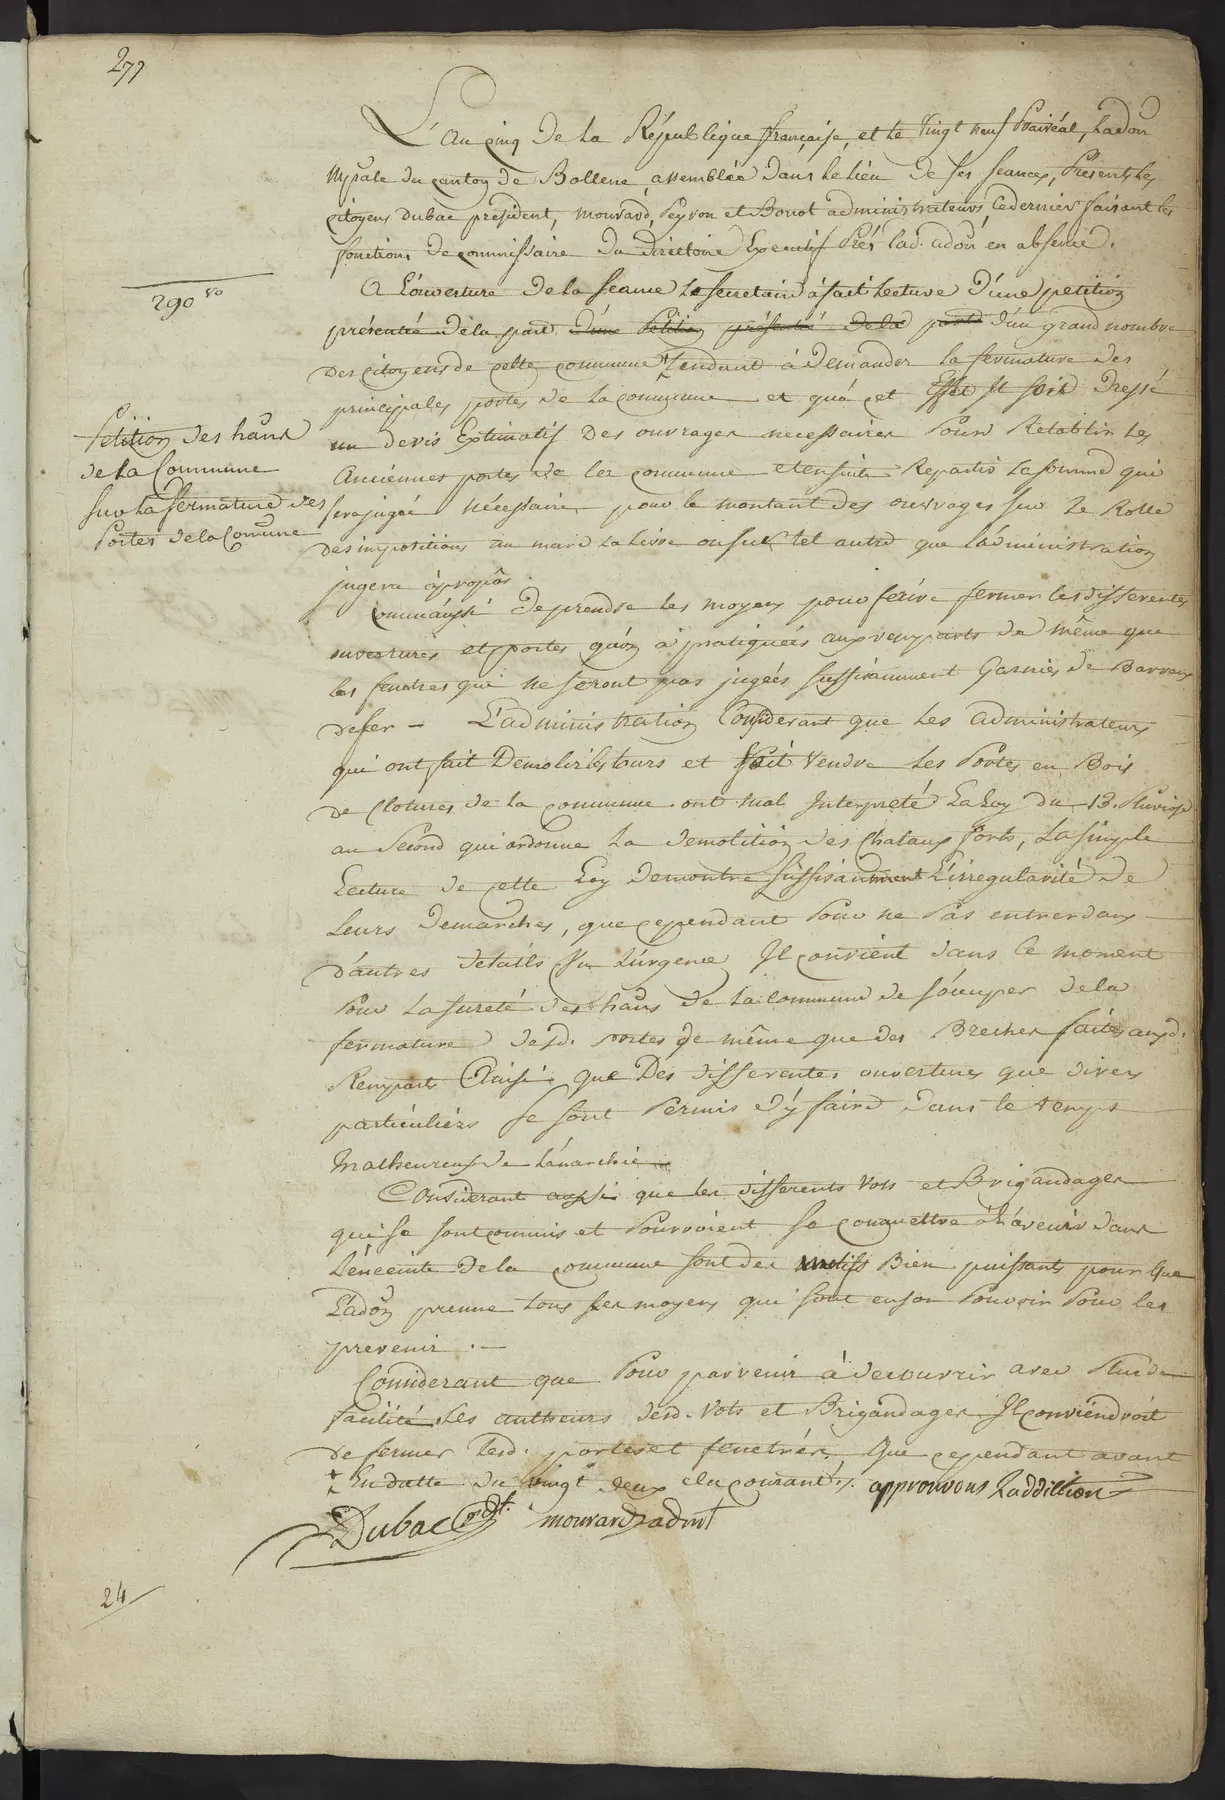 277
L'an cinq de la République française, et le vingt neuf Prairéal, L'adon
mpale du canton de Bollene assemblée dans le lieu de ses seances, Présents les
citoyens Dubac président, mouvard, Peyron et Borot administrateurs, ce dernier faisant les
fonctions de commissaire du directoire Executif Prés lad. adon en absence.
290 vo
A L'ouverture de la seance Le secretaire à fait Lecture d'une petition
présentée de la part d'une Petition présentée de la part d'un grand nombre
des citoyens de cette commune + tendant à demander la fermature des
principales portes de la commune et qu'à cet Effet Il soit dressé
un devis Estimatif des ouvrages necessaires Pour Retablir les
Anciennes portes de la commune et ensuite Repartir la somme qui
sera jugée nécessaire pour le montant des ouvrages sur le Rolle
des impositions au marc la livre ou sur tel autre que l'administration
jugera àpropôs.
Petition des hans
de la Commune
sur la fermature des
Portes de la Comune
comm'aussi de prendre les moyens pour faire fermer les differentes
ouvertures et portes qu'on à pratiquées aux remparts de même que
les fenetres qui ne seront pas jugées suffisamment Garnies de Barraux
de fer - L'administration Considerant que les administrateurs
qui ont fait Demolir les tours et fait vendre les Portes en Bois
de Clotures de la commune ont mal Interpreté La Loy du 13. Pluviose
an Second qui ordonne la demolition des Chataux forts, La simple
Lecture de cette Loy demontre suffisamment L'irregularité de
Leurs demarches, que cependant Pour ne Pas entrer dans
d'autres details Vu L'urgence Il convient dans le moment
Pour La sureté des hans de la Commune de s'ocuper de la
fermature desd. portes de même que des Breches faites auxd.
Remparts Ainsi que Des differentes ouvertures que divers
particuliers se sont Permis d'y faire dans le temps
Malheureux de L'anarchie
Considerant aussi que les differents Vols et Brigandages
qui se sont commis et Pourroient se commettre à L'avenir dans
L'enceinte de la commune sont des motifs Bien puissants pour Que
L'adon prenne tous les moyens qui sont en son Pouvoir Pour les
prevenir. -
Considerant que Pour parvenir à decouvrir avec Plus de
facilité Les autheurs desd. Vols et Brigandages Il conviendroit
de fermer lesd. portes et fenetrés, Que cependant avant
+ En datte du vingt deux du courant ./. approuvons L'addition
Dubac pdt. mouvard adm't
24